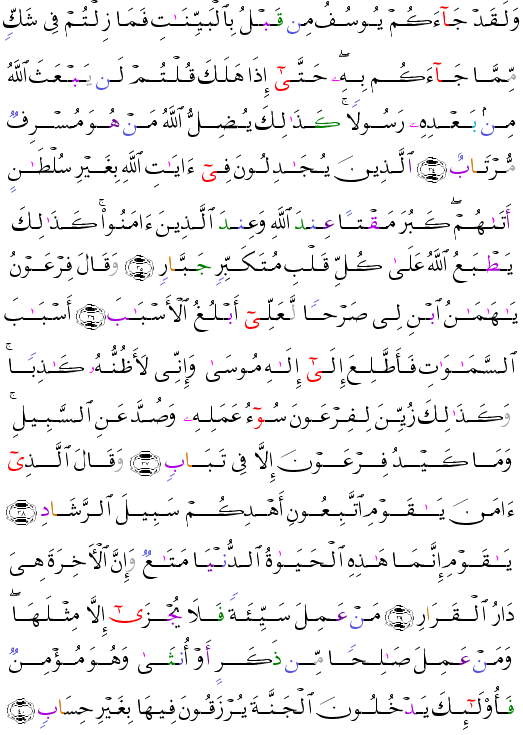 وَلَقَدْ جَآءَكُمْ يُوسُفُ مِن قَبْلُ بِٱلْبَيِّنَـٰتِ فَمَا زِلْتُمْ فِى شَكٍّ
مِّمَّا جَآءَكُم بِهِۦ ۖ حَتَّىٰٓ إِذَا هَلَكَ قُلْتُمْ لَن يَبْعَثَ ٱللَّهُ
مِنۢ بَعْدِهِۦ رَسُولًا ۚ كَذَٰلِكَ يُضِلُّ ٱللَّهُ مَنْ هُوَ مُسْرِفٌ
مُّرْتَابٌ ﴿٣٤﴾ ٱلَّذِينَ يُجَـٰدِلُونَ فِىٓ ءَايَـٰتِ ٱللَّهِ بِغَيْرِ سُلْطَـٰنٍ
أَتَىٰهُمْ ۖ كَبُرَ مَقْتًا عِندَ ٱللَّهِ وَعِندَ ٱلَّذِينَ ءَامَنُوا۟ ۚ كَذَٰلِكَ
يَطْبَعُ ٱللَّهُ عَلَىٰ كُلِّ قَلْبِ مُتَكَبِّرٍ جَبَّارٍ ﴿٣٥﴾ وَقَالَ فِرْعَوْنُ
يَـٰهَـٰمَـٰنُ ٱبْنِ لِى صَرْحًا لَّعَلِّىٓ أَبْلُغُ ٱلْأَسْبَـٰبَ ﴿٣٦﴾ أَسْبَـٰبَ
ٱلسَّمَـٰوَٰتِ فَأَطَّلِعَ إِلَىٰٓ إِلَـٰهِ مُوسَىٰ وَإِنِّى لَأَظُنُّهُۥ كَـٰذِبًا ۚ
وَكَذَٰلِكَ زُيِّنَ لِفِرْعَوْنَ سُوٓءُ عَمَلِهِۦ وَصُدَّ عَنِ ٱلسَّبِيلِ ۚ
وَمَا كَيْدُ فِرْعَوْنَ إِلَّا فِى تَبَابٍ ﴿٣٧﴾ وَقَالَ ٱلَّذِىٓ
ءَامَنَ يَـٰقَوْمِ ٱتَّبِعُونِ أَهْدِكُمْ سَبِيلَ ٱلرَّشَادِ ﴿٣٨﴾
يَـٰقَوْمِ إِنَّمَا هَـٰذِهِ ٱلْحَيَوٰةُ ٱلدُّنْيَا مَتَـٰعٌ وَإِنَّ ٱلْأَخِرَةَ هِىَ
دَارُ ٱلْقَرَارِ ﴿٣٩﴾ مَنْ عَمِلَ سَيِّئَةً فَلَا يُجْزَىٰٓ إِلَّا مِثْلَهَا ۖ
وَمَنْ عَمِلَ صَـٰلِحًا مِّن ذَكَرٍ أَوْ أُنثَىٰ وَهُوَ مُؤْمِنٌ
فَأُو۟لَـٰٓئِكَ يَدْخُلُونَ ٱلْجَنَّةَ يُرْزَقُونَ فِيهَا بِغَيْرِ حِسَابٍ ﴿٤٠﴾